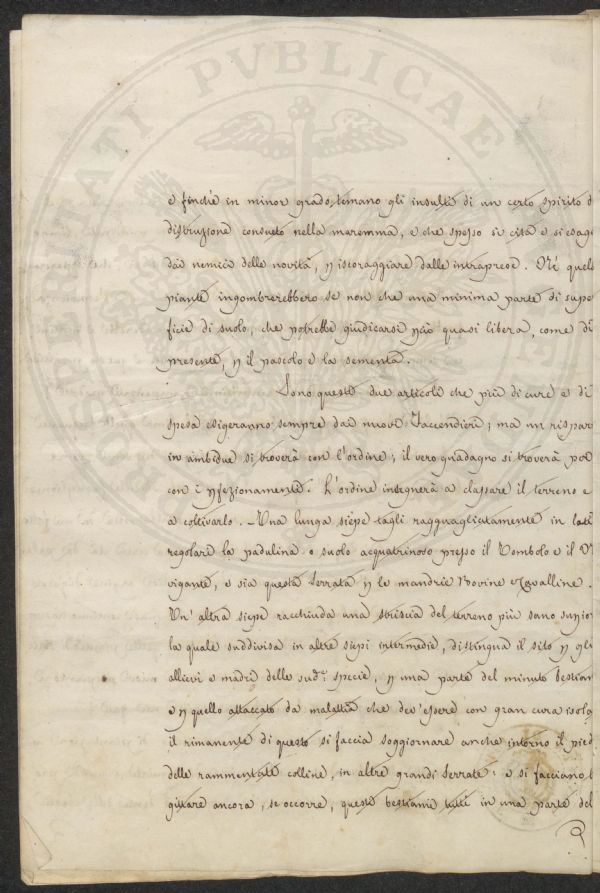 e finchè in minor grado temano gli insulti di un certo spirito d
distruzione consueto nella maremma, e che spesso si cita e si esag
dai nemici delle novità, p iscoraggiare dalle intraprese. Nè quel
piante ingombrerebbero se non che una minima parte di supe
ficie di suolo, che potrebbe giudicarsi pciò quasi libera, come di
presente, p il pascolo e la sementa.
Sono questi due articoli che più di cure e di
spesa esigeranno sempre dai nuovi Faccendieri; ma un rispar
in ambidue si troverà con l'ordine; il vero guadagno si troverà poi
con i pfezionamenti. L'ordine insegnerà a classare il terreno e
a coltivarlo. Una lunga siepe tagli ragguagliatamente in lati
regolari la padulina o suolo acquatrinoso presso il Tombolo e il N
vigante, e sia questa serrata p le mandrie Bovine e Cavalline.
Un' altra siepe racchiuda una striscia del terreno più sano supior
la quale suddivisa in altre siepi intermedie, distingua il sito p gli
allievi e madri delle sud.e specie, p una parte del minuto bestiam
e p quello attaccato da malattia che dev'essere con gran cura isola
il rimanente di questo si faccia soggiornare anche intorno il pied
delle rammentate colline, in altre grandi serrate: e si facciano
gittare ancora, se occorre, questi bestiami tutti in una parte del
POSTERITATI PVBLICAE